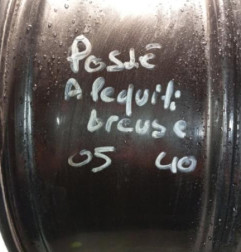 Posté
A l'equili
breuse
05 40